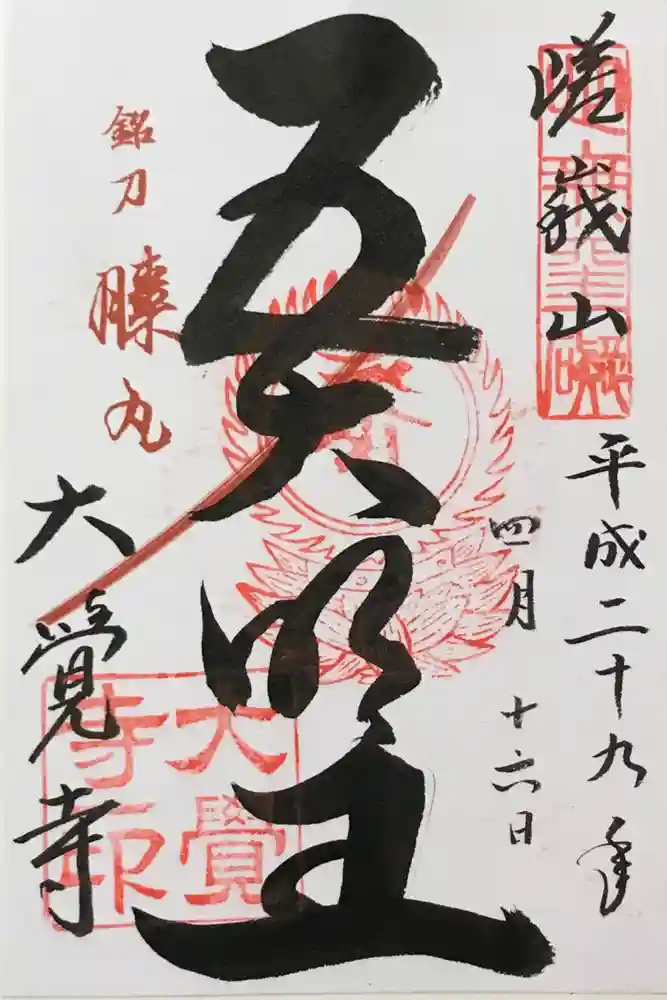 嵯峨山
平成二十九年
四月十六日
五大明王
銘刀
膝丸
大覺寺
大覺寺印